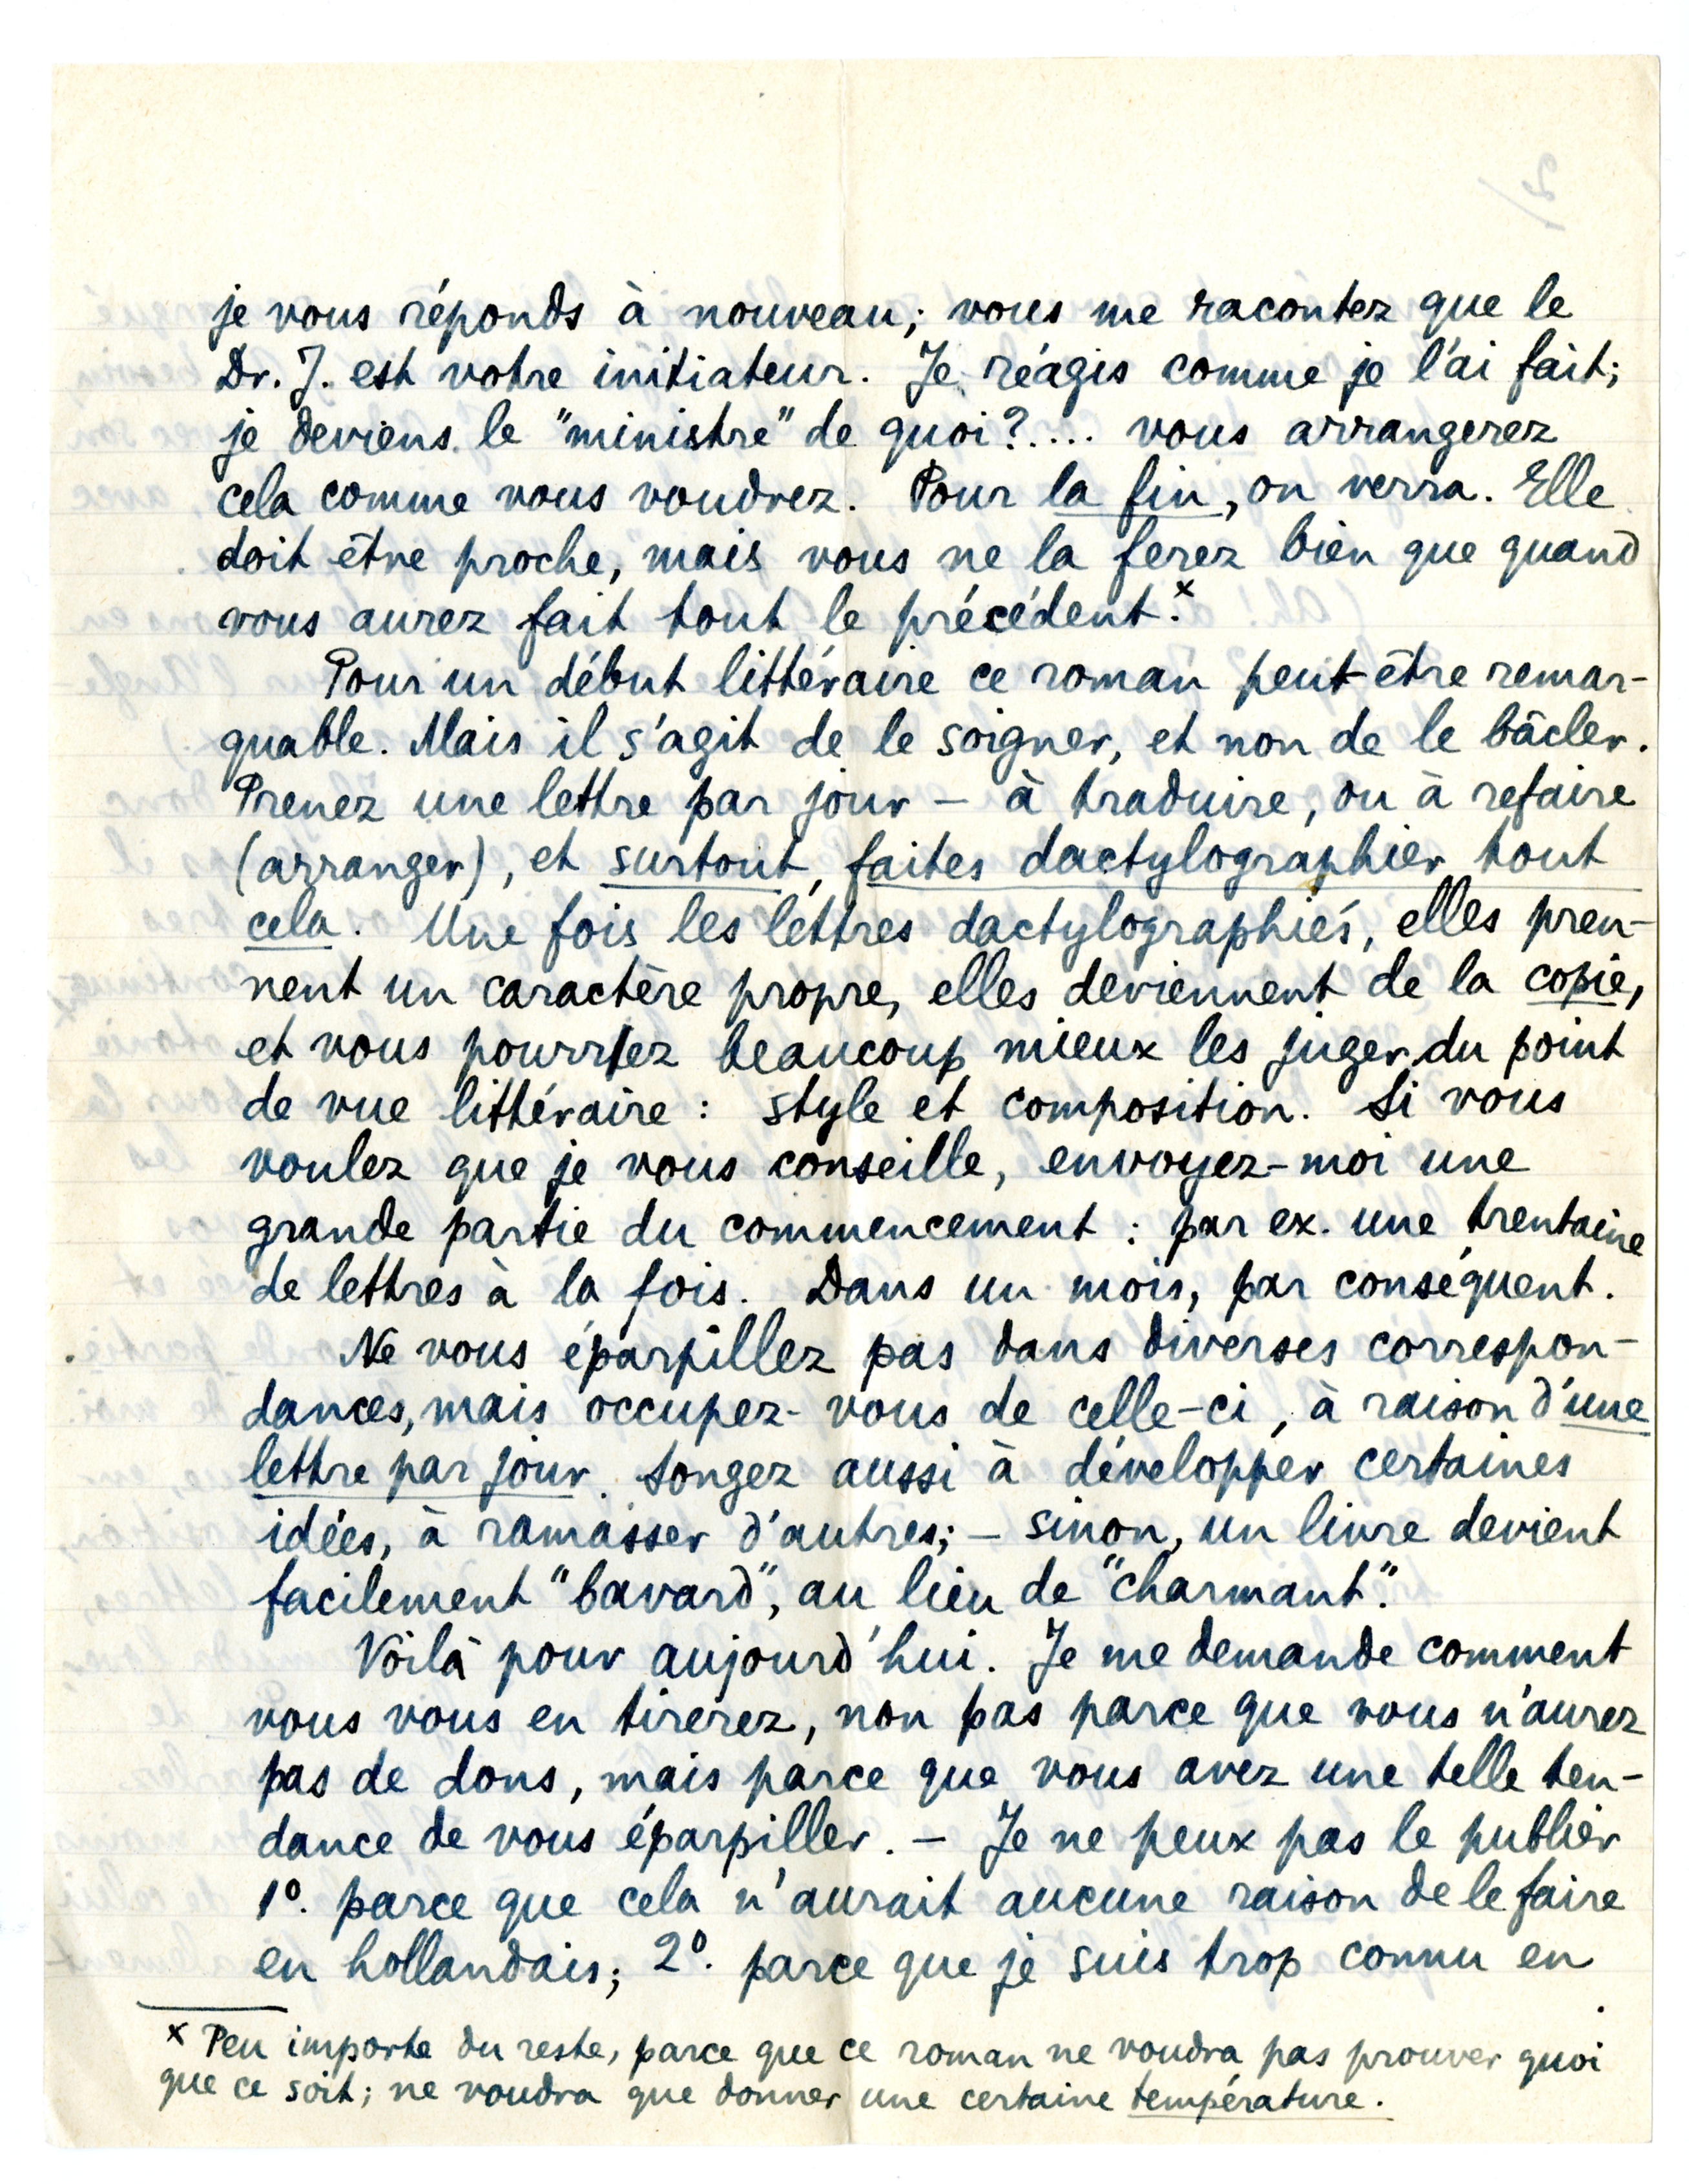 je vous réponds à nouveau; vous me racontez que le
Dr. J. est votre initiateur. Je réagis comme je l'ai fait;
je deviens le "ministre" de quoi?.... vous arrangerez
cela comme vous voudrez. Pour la fin, on verra. Elle
doit être proche, mais vous ne la ferez bien que quand
vous aurez fait tout le précédent.x
Pour un début littéraire ce roman peut être remar-
quable. Mais il s'agit de le soigner, et non de le bâcler.
Prenez une lettre par jour – à traduire, ou à refaire
(arranger), et surtout, faites dactylographier tout
cela. Une fois les lettres dactylographiés, elles pren-
nent un caractère propre, elles deviennent de la copie,
et vous pourrez beaucoup mieux les juger du point
de vue littéraire: style et composition. Si vous
voulez que je vous conseille, envoyez-moi une
grande partie du commencement: par ex. une trentaine
de lettres à la fois. Dans un mois, par conséquent.
Ne vous éparpillez pas dans diverses correspon-
dances, mais occupez-vous de celle-ci, à raison d'une
lettre par jour. Songez aussi à développer certaines
idées, à ramasser d'autres; – sinon, un livre devient
facilement "bavard", au lieu de "charmant".
Voilà pour aujourd'hui. Je me demande comment
vous vous en tirerez, non pas parce que vous n'aurez
pas de dons, mais parce que vous avez une telle ten-
dance de vous éparpiller. – Je ne peux pas le publier
1º. parce que cela n'aurait aucune raison de le faire
en hollandais; 2º. parce que je suis trop connu en
x Peu importe du reste, parce que ce roman ne voudra pas prouver quoi
que ce soit; ne voudra que donner une certaine température.